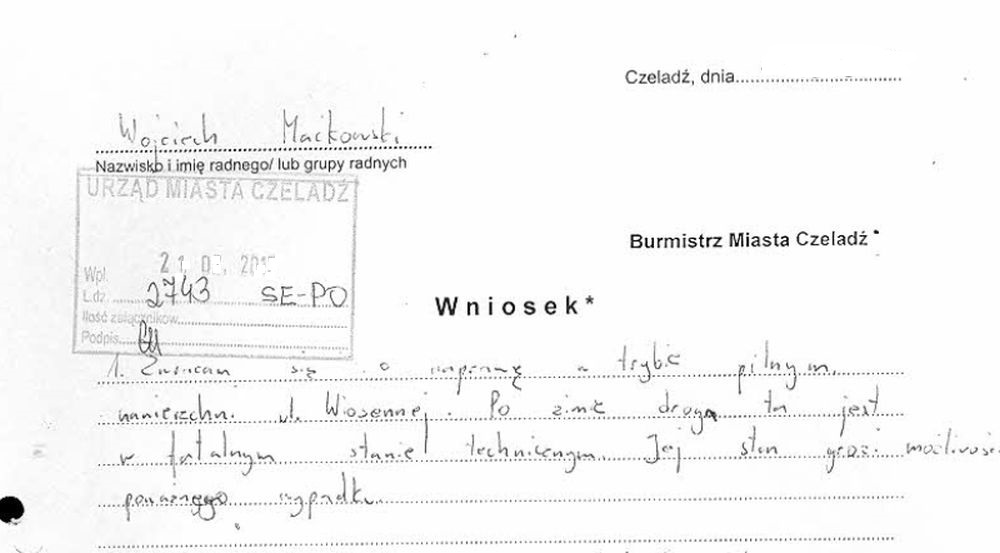 Czeladź, dnia
Wojciech Maćkowski
Nazwisko i imię radnego/ lub grupy radnych
URZĄD MIASTA CZELADŹ
Burmistrz Miasta Czeladź
Wpł. 21.
L.dz. 2743 SE-PO
Wniosek*
Ilość załączników
Podpis
1. Zwracam się o naprawę w trybie pilnym
nawierzchn. ul. Wiosennej. Po zimie droga ta jest
w fatalnym stanie technicznym. Jej stan grozi możliwości
poważnego wypadku